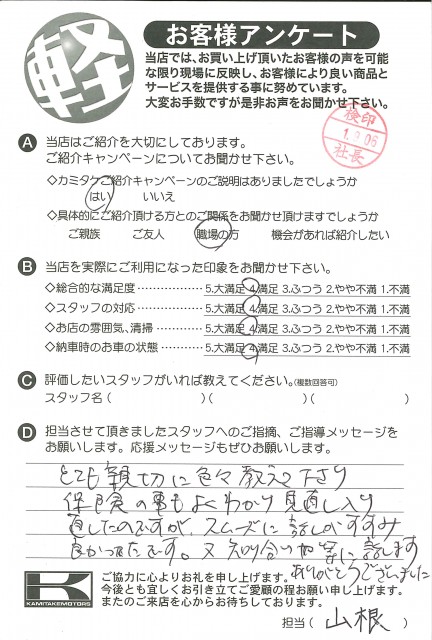 軽
お客様アンケート
当店では、お買い上げ頂いたお客様の声を可能
な限り現場に反映し、お客様により良い商品と
サービスを提供する事に努めています。
大変お手数ですが是非お声をお聞かせ下さい。
検印
1.9.06
社長
A 当店はご紹介を大切にしております。
ご紹介キャンペーンについてお聞かせ下さい。
◇カミタケご紹介キャンペーンのご説明はありましたでしょうか
はい いいえ
◇具体的にご紹介頂ける方とのご関係をお聞かせ頂けますでしょうか
ご親族 ご友人 職場の方 機会があれば紹介したい
B 当店を実際にご利用になった印象をお聞かせ下さい。
◇総合的な満足度 ……………… 5.大満足 4.満足 3.ふつう 2.やや不満 1.不満
◇スタッフの対応 ……………… 5.大満足 4.満足 3.ふつう 2.やや不満 1.不満
◇お店の雰囲気、清掃 ………… 5.大満足 4.満足 3.ふつう 2.やや不満 1.不満
◇納車時のお車の状態 ………… 5.大満足 4.満足 3.ふつう 2.やや不満 1.不満
C 評価したいスタッフがいれば教えてください。(複数回答可)
スタッフ名( )( )( )
D 担当させて頂きましたスタッフへのご指摘、ご指導メッセージを
お願いします。応援メッセージもぜひお願いします。
とても親切に色々教えて下り
保険の事もよくわかり見直し入り
直したのですが、スムーズに話しがすすみ
良かったです。又知り合いや等に話します
ありがとうございました
K
KAMITAKEMOTORS
ご協力に心よりお礼を申し上げます。
今後とも宜しくお引き立てご愛顧の程お願い申し上げます。
またのご来店を心からお待ちしております。
担当( 山根 )